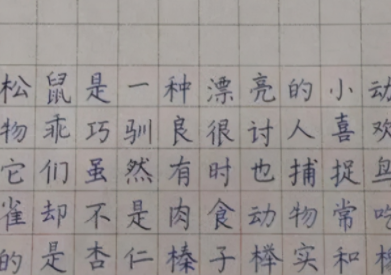 松鼠是一种漂亮的小动
物乖巧驯良很讨人喜欢
它们虽然有时也捕捉鸟
雀却不是肉食动物常吃
的是杏仁榛子榉实和